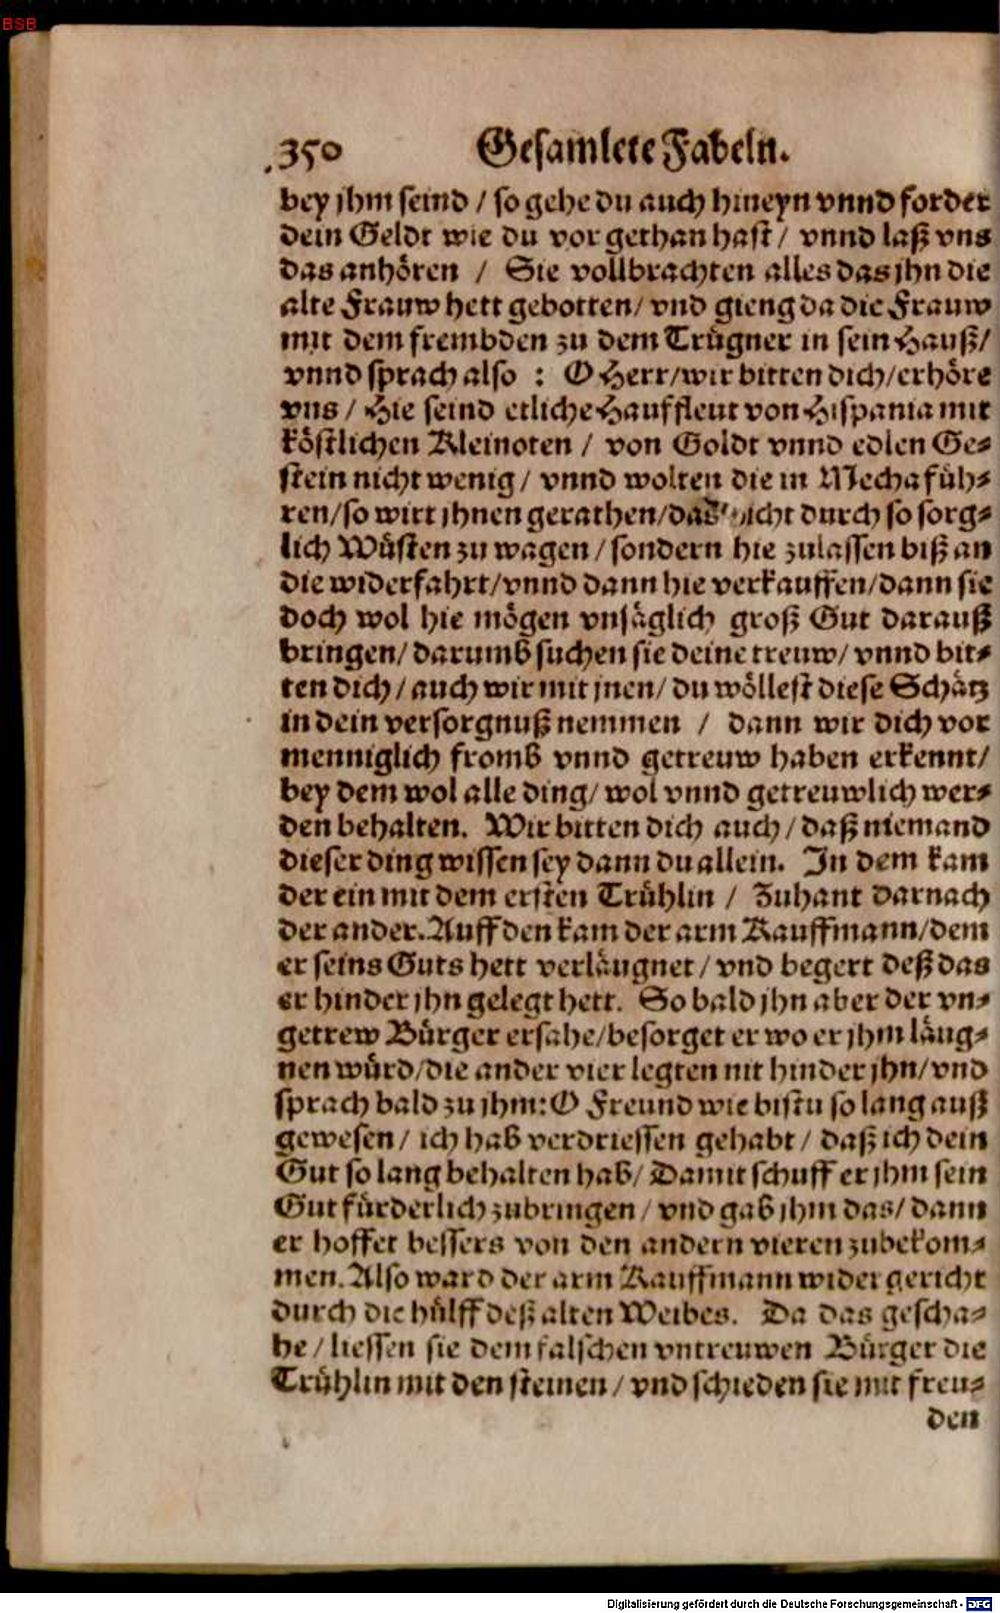 BSB
350 Gesamlete Fabeln.
bey jhm seind / so gehe du auch hineyn vnnd forder
dein Geldt wie du vor gethan hast / vnnd laß vns
das anhören / Sie vollbrachten alles das jhn die
alte Frauw hett gebotten / vnd gieng da die Frauw
mit dem frembden zu dem Trügner in sein Hauß /
vnnd sprach also : O Herr / wir bitten dich / erhöre
vns / Hie seind etliche Kauffleut von Hispania mit
köstlichen Kleinoten / von Goldt vnnd edlen Ge⸗
stein nicht wenig / vnnd wolten die in Mecha füh⸗
ren / so wirt jhnen gerathen / das nicht durch so sorg⸗
lich Wüsten zu wagen / sondern hie zulassen biß an
die widerfahrt / vnnd dann hie verkauffen / dann sie
doch wol hie mögen vnsäglich groß Gut darauß
bringen / darumb suchen sie deine treuw / vnnd bit⸗
ten dich / auch wir mit jnen / du wöllest diese Schätz
in dein versorgnuß nemmen / dann wir dich vor
menniglich fromb vnnd getreuw haben erkennt /
bey dem wol alle ding / wol vnnd getreuwlich wer⸗
den behalten. Wir bitten dich auch / daß niemand
dieser ding wissen sey dann du allein. In dem kam
der ein mit dem ersten Trühlin / Zuhant darnach
der ander. Auff den kam der arm Kauffmann / dem
er seins Guts hett verläugnet / vnd begert deß das
er hinder jhn gelegt hett. So bald jhn aber der vn⸗
getrew Bürger ersahe / besorget er wo er jhm läug⸗
nen würd / die ander vier legten nit hinder jhn / vnd
sprach bald zu jhm: O Freund wie bistu so lang auß
gewesen / ich hab verdriessen gehabt / daß ich dein
Gut so lang behalten hab / Damit schuff er jhm sein
Gut fürderlich zubringen / vnd gab jhm das / dann
er hoffet bessers von den andern vieren zubekom⸗
men. Also ward der arm Kauffmann wider gericht
durch die hülff deß alten Weibes. Da das gescha⸗
he / liessen sie dem falschen vntreuwen Bürger die
Trühlin mit den steinen / vnd schieden sie mit freu⸗
den
Digitalisierung gefördert durch die Deutsche Forschungsgemeinschaft - DFG